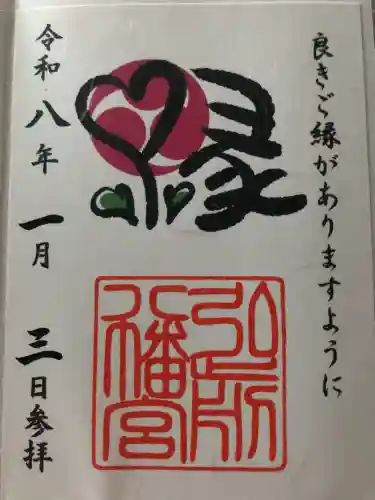 良きご縁がありますように
縁
弘所
八幡宮
令和八年一月三日参拝